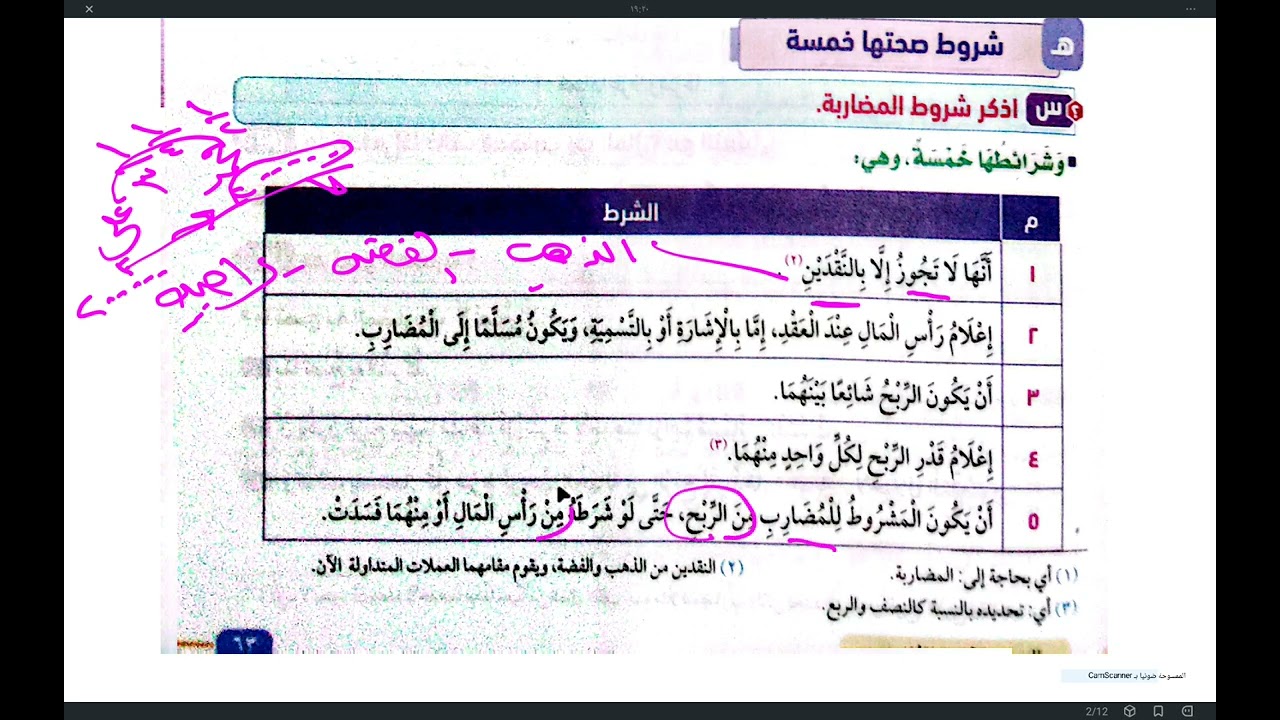 ١٩:٢٠
هـ شروط صحتها خمسة
س اذكر شروط المضاربة.
وَشَرَائِطُهَا خَمْسَةٌ، وهي:
م الشرط
١ أَنَّهَا لَا تَجُوزُ إِلَّا بِالنَّقْدَيْنِ (٢).
الذهب - الفضة -
٢ إِعْلَامُ رَأْسِ الْمَالِ عِنْدَ الْعَقْدِ، إِمَّا بِالْإِشَارَةِ أَوْ بِالتَّسْمِيَةِ، وَيَكُونُ مُسَلَّمًا إِلَى الْمُضَارِبِ.
٣ أَنْ يَكُونَ الرِّبْحُ شَائِعًا بَيْنَهُمَا.
٤ إِعْلَامُ قَدْرِ الرِّبْحِ لِكُلِّ وَاحِدٍ مِنْهُمَا. (٣)
٥ أَنْ يَكُونَ الْمَشْرُوطُ لِلْمُضَارِبِ مِنَ الرِّبْحِ، حَتَّى لَوْ شَرَطَهُ مِنْ رَأْسِ الْمَالِ أَوْ مِنْهُمَا فَسَدَتْ.
(١) أي بحاجة إلى: المضاربة. (٢) النقدين من الذهب والفضة، ويقوم مقامهما العملات المتداولة الآن.
(٣) أي: تحديده بالنسبة كالنصف والربع.
٦٣
الممسوحة ضوئيا بـ CamScanner
2/12